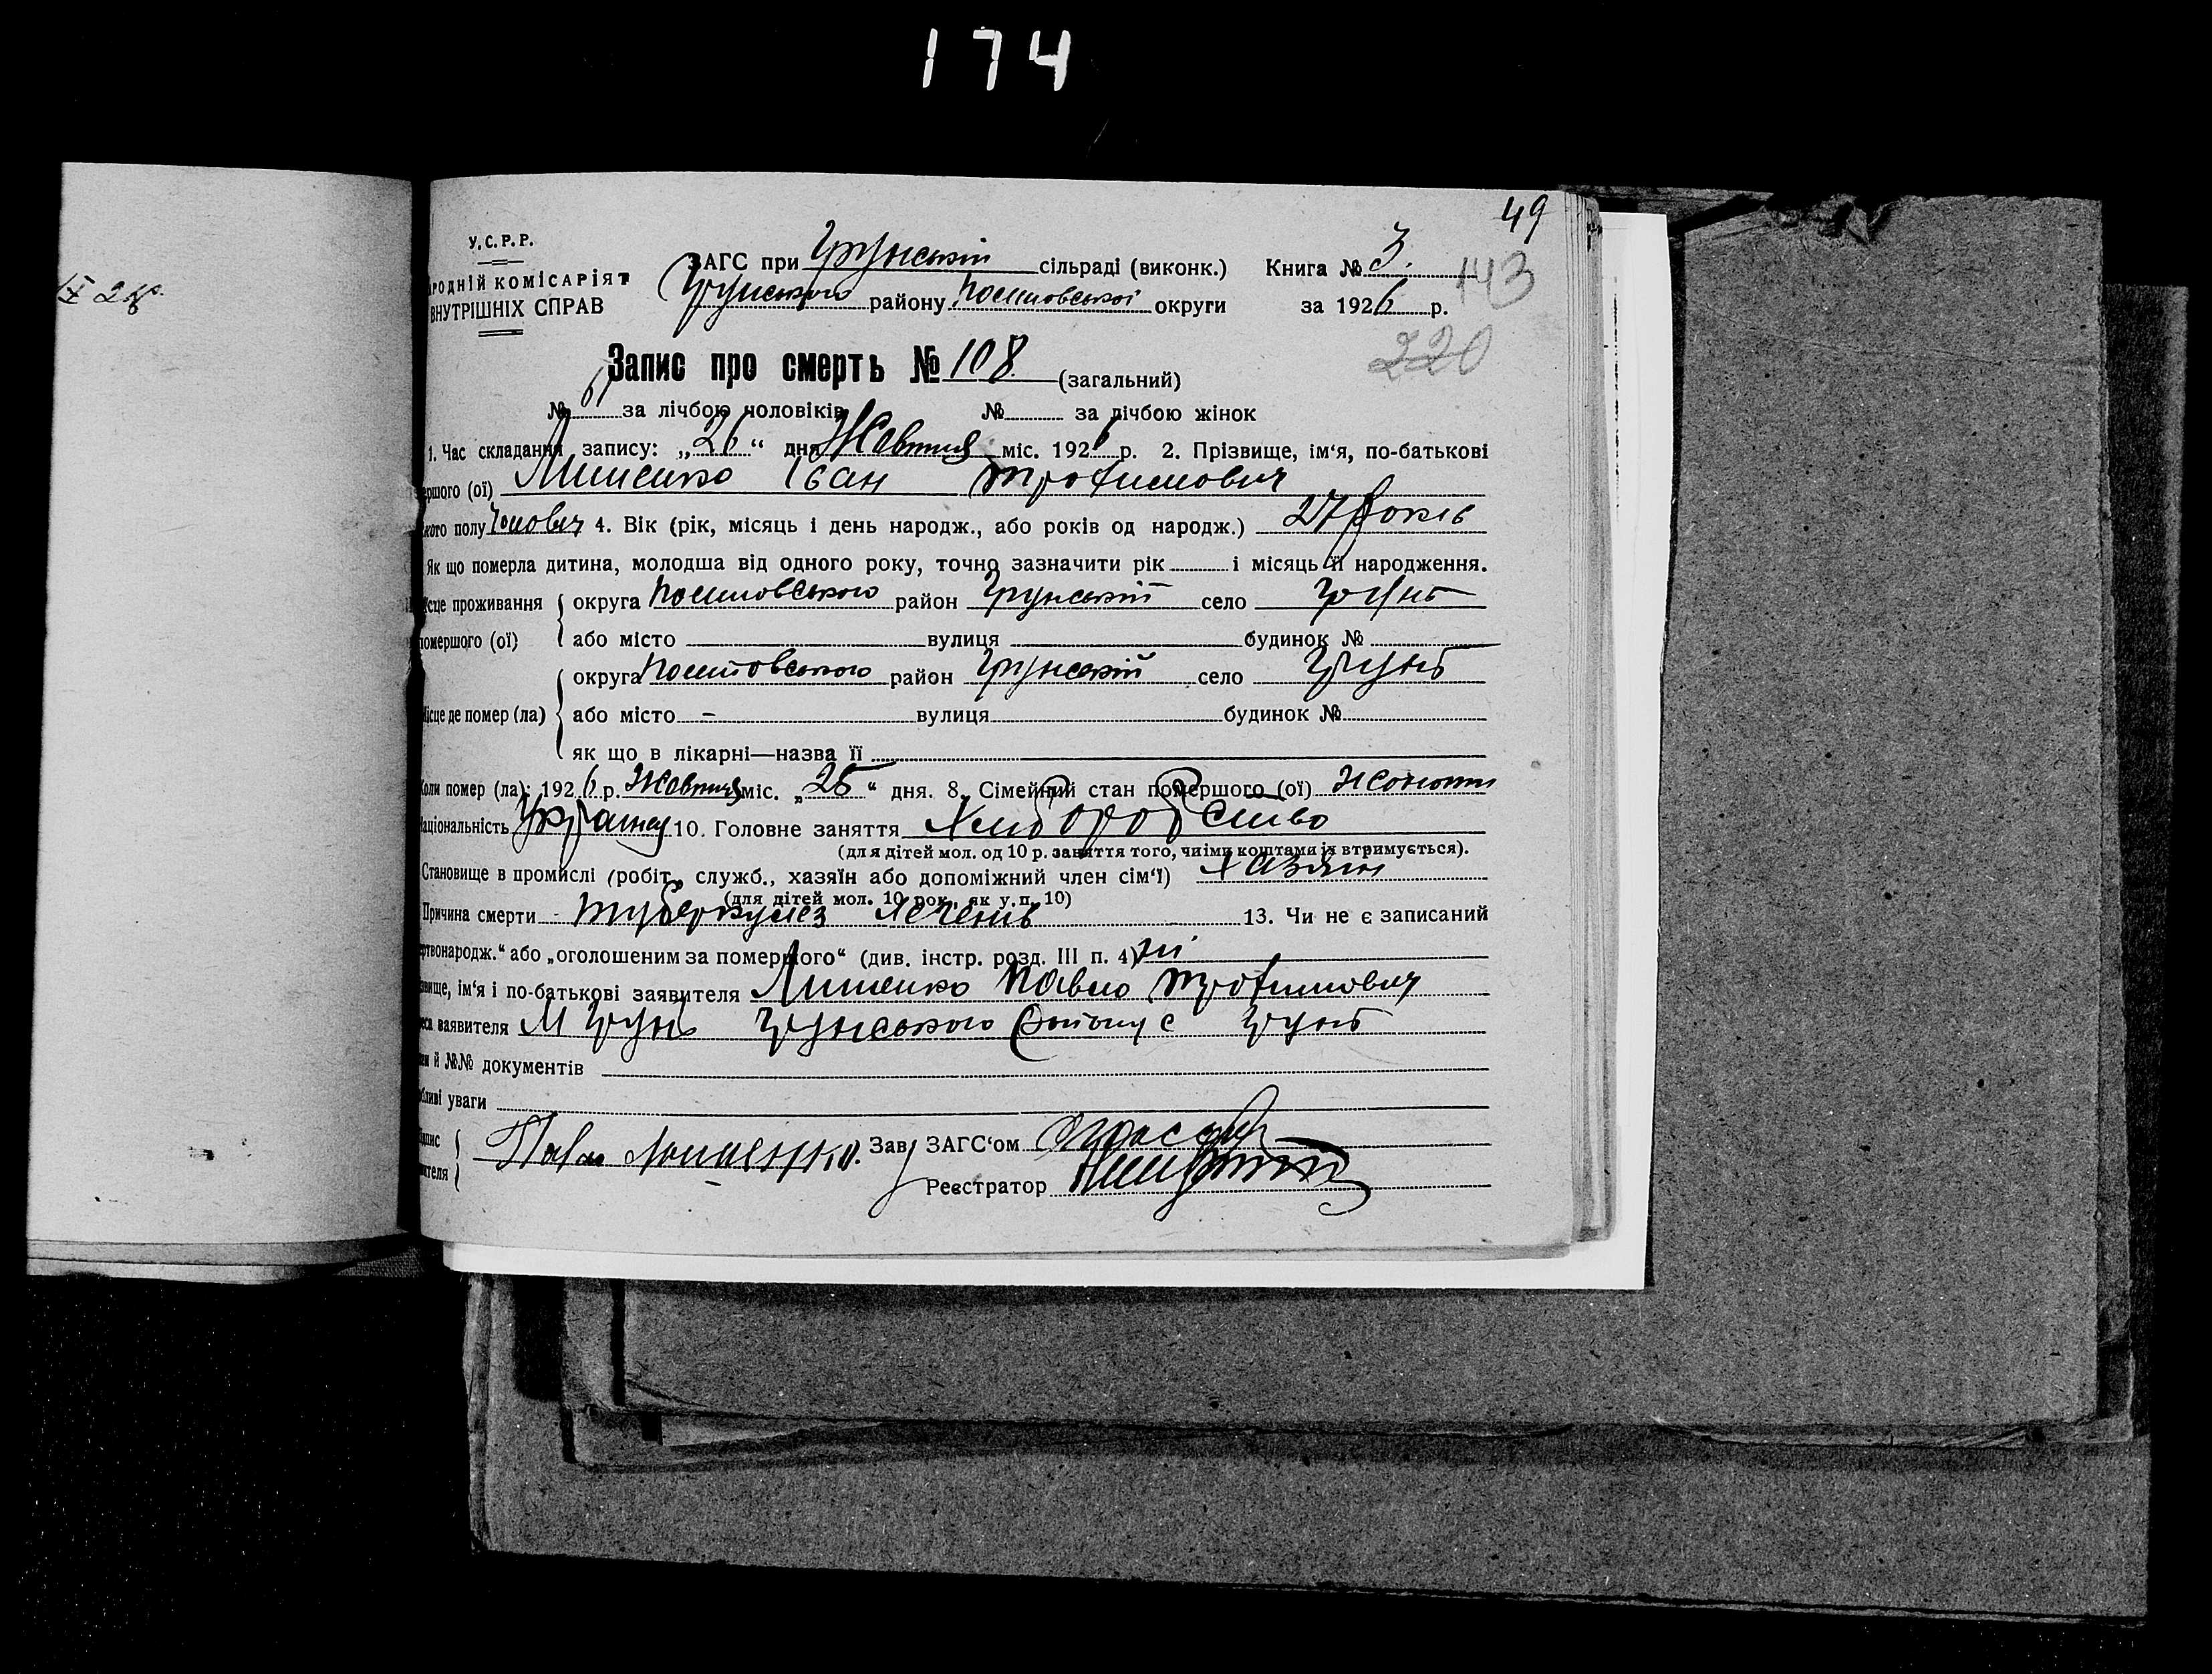 174
49
У.С.Р.Р.
РОДНІЙ КОМІСАРІЯТ
ВНУТРІШНІХ СПРАВ
ЗАГС при Грунській сільраді (виконк.) Книга № 3.
Грунського району округи за 1926 р.
143
220
Запис про смерть № 108. (загальний)
№ 61 за лічбою чоловіків № за лічбою жінок
1. Час складання запису: „26“ дня Жовтня міс. 1926 р. 2. Прізвище, ім‘я, по-батькові
ершого (ої) Лишенко Іван Трофимович
кого полу 4. Вік (рік, місяць і день народж., або років од народж.) 27 років
Як що померла дитина, молодша від одного року, точно зазначити рік і місяць її народження.
сце проживання округа район Грунський село Грунь
помершого (ої) або місто вулиця будинок №
округа район Грунський село Грунь
Місце де помер (ла) або місто - вулиця будинок №
як що в лікарні—назва її
Коли помер (ла): 1926 р. Жовтня міс. „25“ дня. 8. Сімейний стан помершого (ої)
аціональність 10. Головне заняття Хліборобство
(для дітей мол. од 10 р. заняття того, чиїми коштами їх втримується).
Становище в промислі (робіт., служб., хазяїн або допоміжний член сім‘ї) хазяїн
(для дітей мол. 10 рок., як у п. 10)
Причина смерти туберкулез легень 13. Чи не є записаний
ртвонародж.“ або „оголошеним за померлого“ (див. інстр. розд. III п. 4) ні
звище, ім‘я і по-батькові заявителя Лишенко Павло Трофимович
еса заявителя М Грунь Грунського району с Грунь
й №№ документів
бливі уваги
дпис
вителя
Павло Лишенко. Зав ЗАГС‘ом
Реєстратор